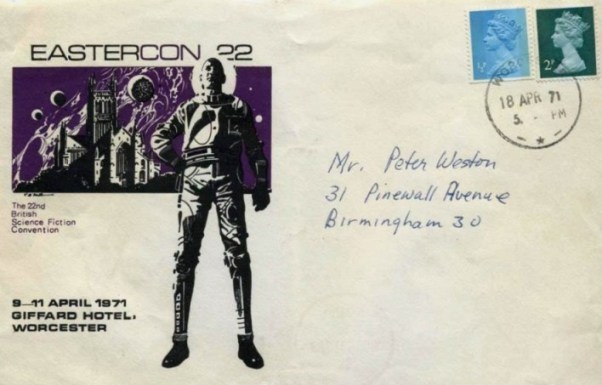 EASTERCON 22
The 22nd
British
Science Fiction
Convention
9–11 APRIL 1971
GIFFARD HOTEL,
WORCESTER
2
WORC
18 APR 71
5. - PM
Mr. Peter Weston
31 Pinewall Avenue
Birmingham 30